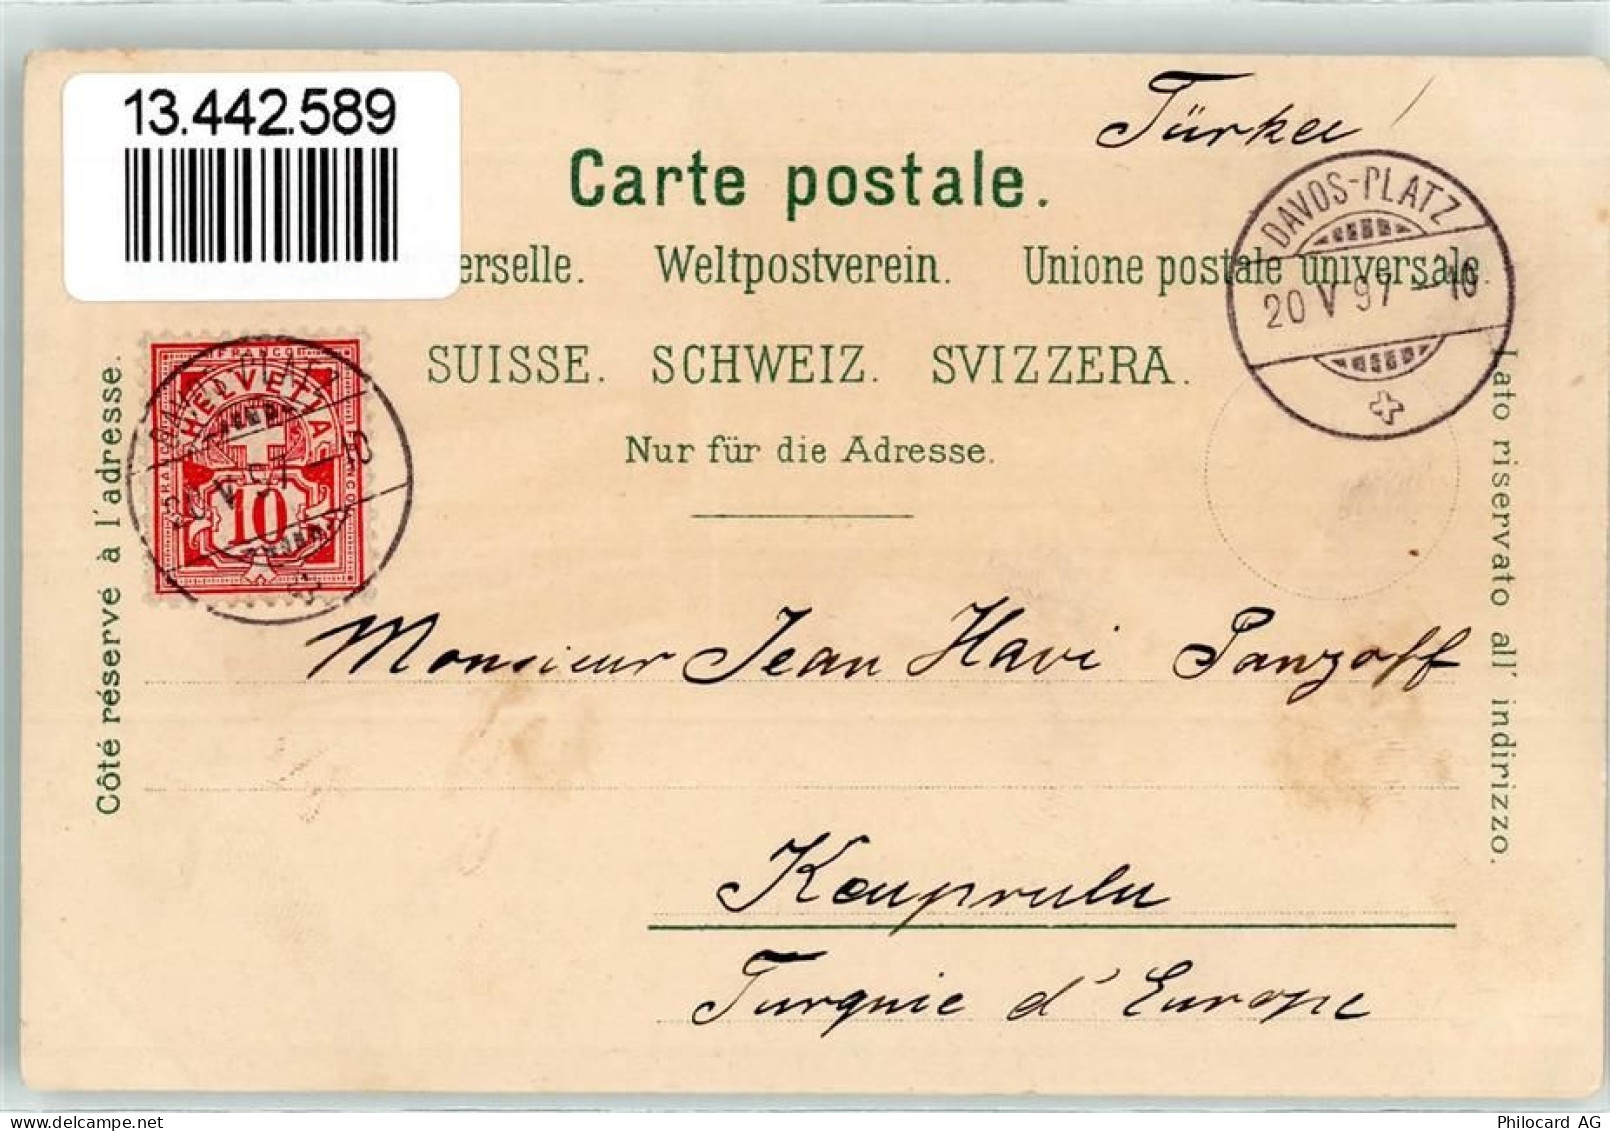 13.442.589
Türkei
Carte postale.
erselle. Weltpostverein. Unione postale universale.
SUISSE. SCHWEIZ. SVIZZERA.
Nur für die Adresse.
DAVOS-PLATZ
20 V 97 - 10
FRANCO
HELVETIA
10
20 V 97 - 10
Côté réservé à l'adresse.
Lato riservato all' indirizzo.
Monsieur Jean Havi Panzoff
Kouprulu
Turquie d'Europe
delcampe.net
Philocard AG